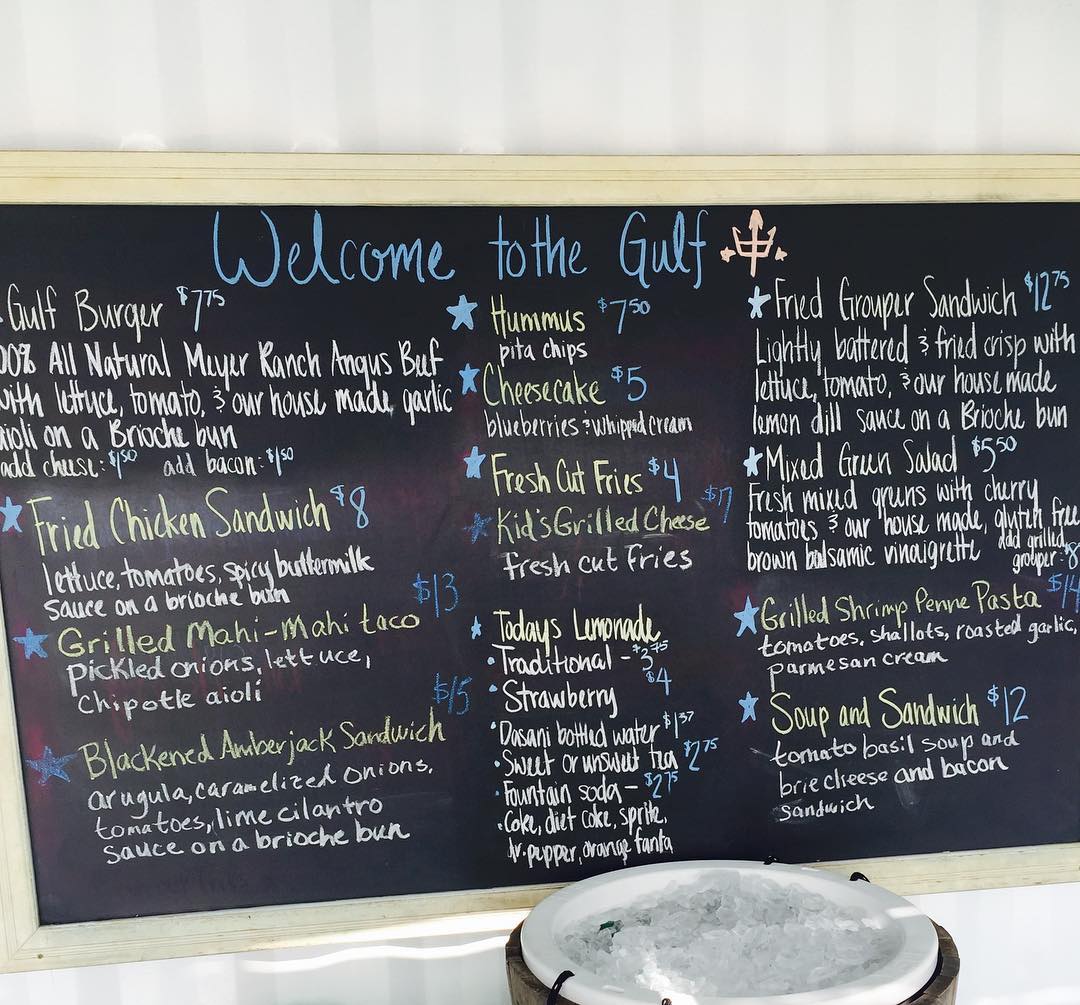 Welcome to the Gulf
Gulf Burger $7.75
00% All Natural Meyer Ranch Angus Beef
with lettuce, tomato, & our house made garlic
aioli on a Brioche bun
add cheese: $1.50 add bacon: $1.50
Fried Chicken Sandwich $8
lettuce, tomatoes, spicy buttermilk
sauce on a brioche bun
$13
Grilled Mahi-Mahi taco
pickled onions, lettuce,
Chipotle aioli
$15
Blackened Amberjack Sandwich
arugula, caramelized onions,
tomatoes, lime cilantro
sauce on a brioche bun
Hummus $7.50
pita chips
Cheesecake $5
blueberries & whipped cream
Fresh Cut Fries $4
Kid's Grilled Cheese
fresh cut fries
Todays Lemonade
Traditional - $3.75
Strawberry $4
Dasani bottled water $1.37
Sweet or unsweet tea $2.75
Fountain soda - $2.75
Coke, diet coke, sprite,
dr. pepper, orange fanta
Fried Grouper Sandwich $12.75
Lightly battered & fried crisp with
lettuce, tomato, & our house made
lemon dill sauce on a Brioche bun
Mixed Green Salad $5.50
Fresh mixed greens with cherry
tomatoes & our house made, gluten free
brown balsamic vinaigrette add grilled
grouper: $8
$14
Grilled Shrimp Penne Pasta
tomatoes, shallots, roasted garlic,
parmesan cream
Soup and Sandwich $12
tomato basil soup and
brie cheese and bacon
sandwich